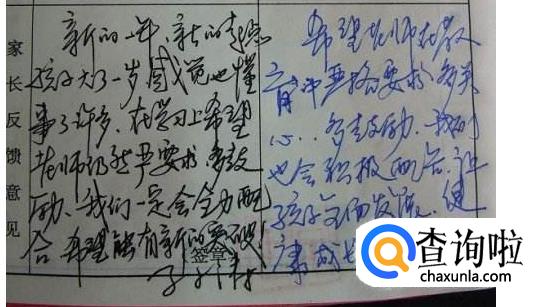 家长反馈意见
新的一年，新的
孩子大了一岁感觉也懂
事了许多，在学习上希望
老师仍然严要求多鼓
励、我们一定会全力配
合 希望能有新的突破！
签章
希望老师在教
育中严格要求，多关
心，多鼓励，我们
也会积极配合，让
孩子全面发展，健
康成长
查询啦
chaxunla.com